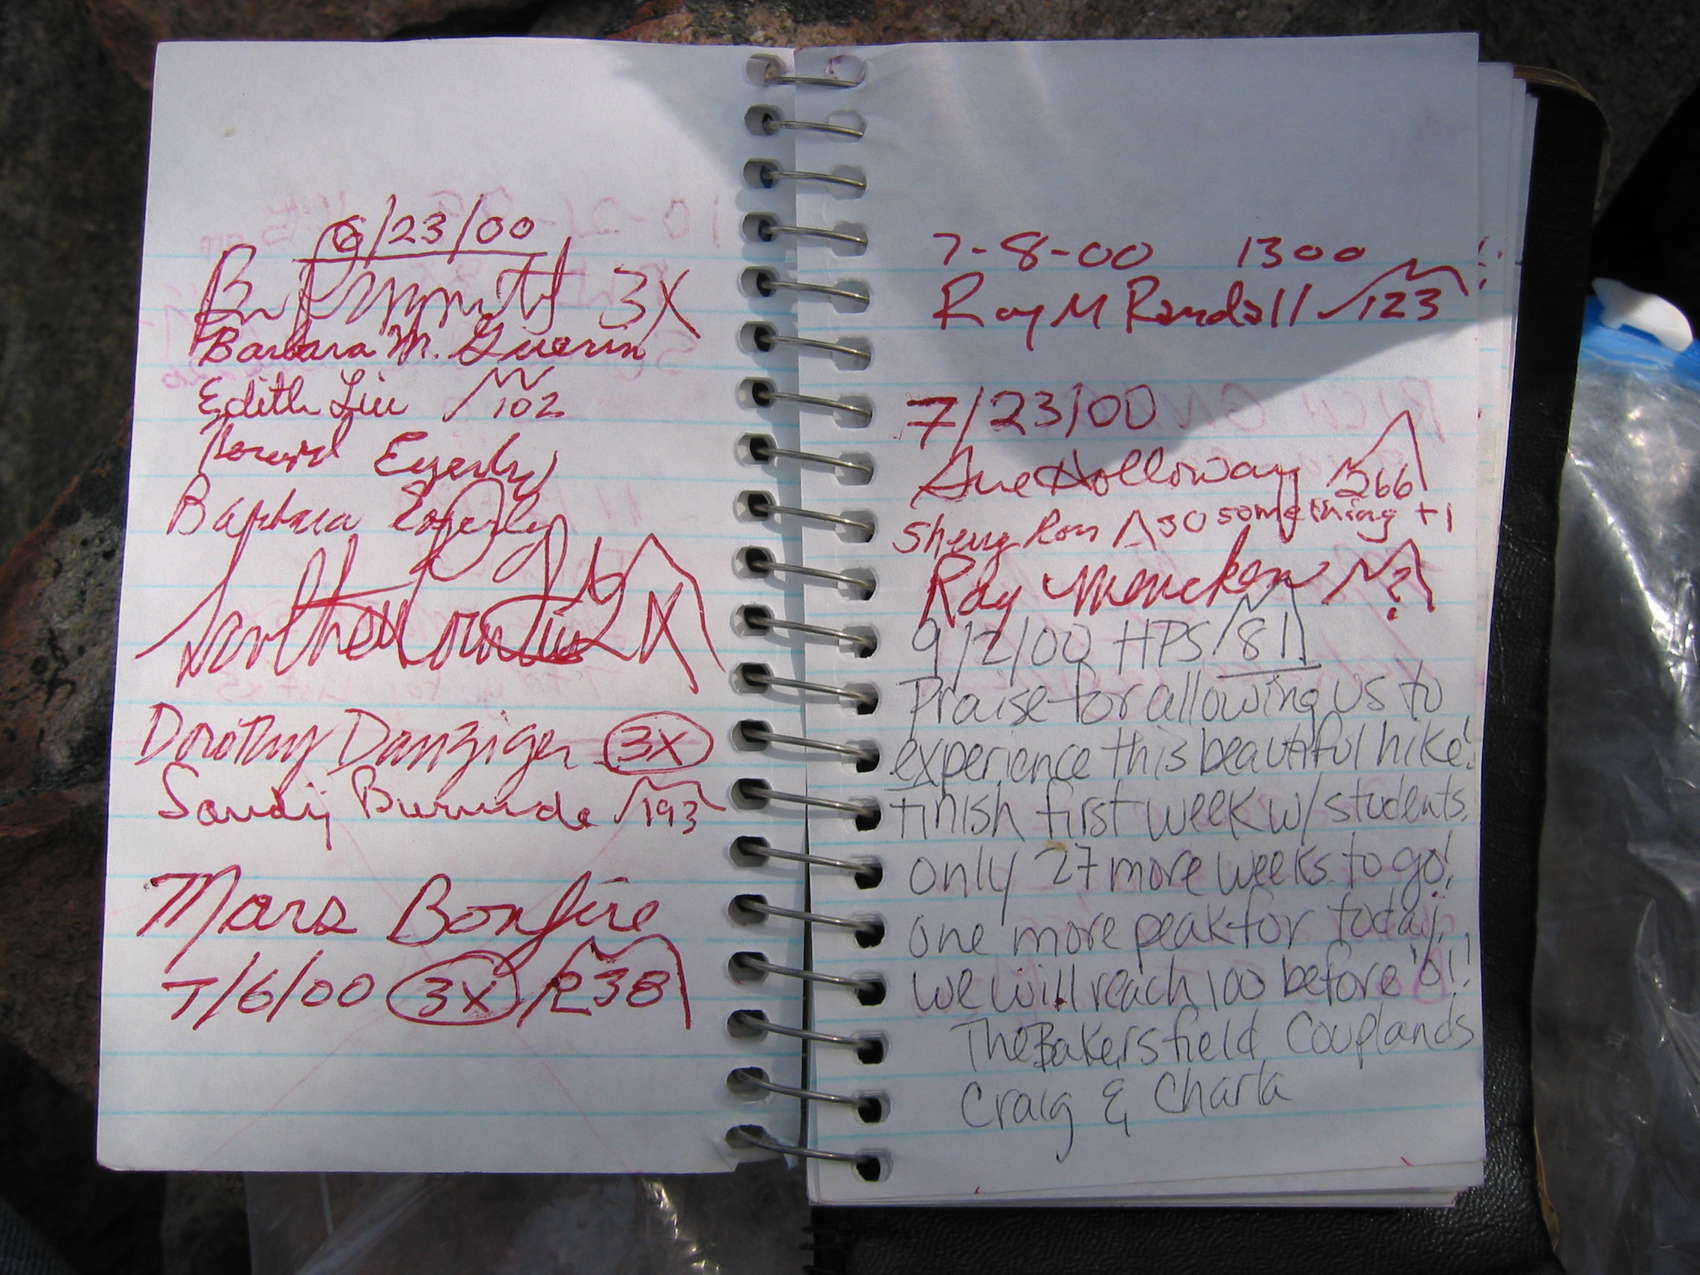 6/23/00
3X
Barbara M. Guerin
Edith Liu 102
Howard Eyerly
Barbara Eyerly
Dorothy Danziger 3X
Sandy Burnside 193
Mars Bonfire
7/6/00 3X 238
7-8-00 1300
Ray M Randall 123
7/23/00
Sue Holloway 266
Sherry Ross 30 something +1
Ray Mencken ?
9/2/00 HPS 81
Praise for allowing us to
experience this beautiful hike!
finish first week w/ students.
only 27 more weeks to go!
one more peak for today.
we will reach 100 before '01!!
The Bakersfield Couplands
Craig & Charla